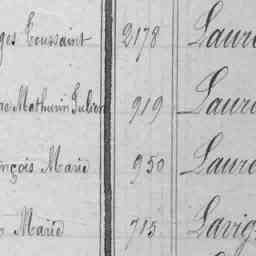 ges Toussaint 2178 Laure
re Mathurin Julien 919 Laure
nçois Marie 950 Laure
Marie 715 Lavig